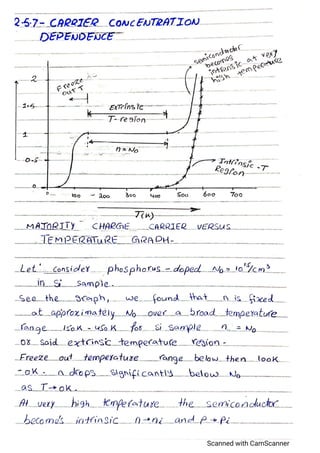 2-5-7- CARRIER CONCENTRATION
DEPENDENCE
semiconductor
becomes
intrinsic at very
high temperature
Freeze
out T
2
1.5
1
0.5
0
Extrinsic
T- region
n = ND
Intrinsic -T
Region
0 100 200 300 400 500 600 700
T(K)
MAJORITY CHARGE CARRIER VERSUS
TEMPERATURE GRAPH-
Let consider phosphorus-doped ND = 10¹⁵/cm³
in Si Sample.
See the graph, we found that n is fixed
at approximately ND over a broad temperature
range 150K - 450K for Si sample n = ND
or said extrinsic temperature region.
Freeze out temperature range below then 100K
-0K. n drops significantly below ND
as T→0K.
At very high temperature the semiconductor
becomes intrinsic n→ni and P→Pi
Scanned with CamScanner